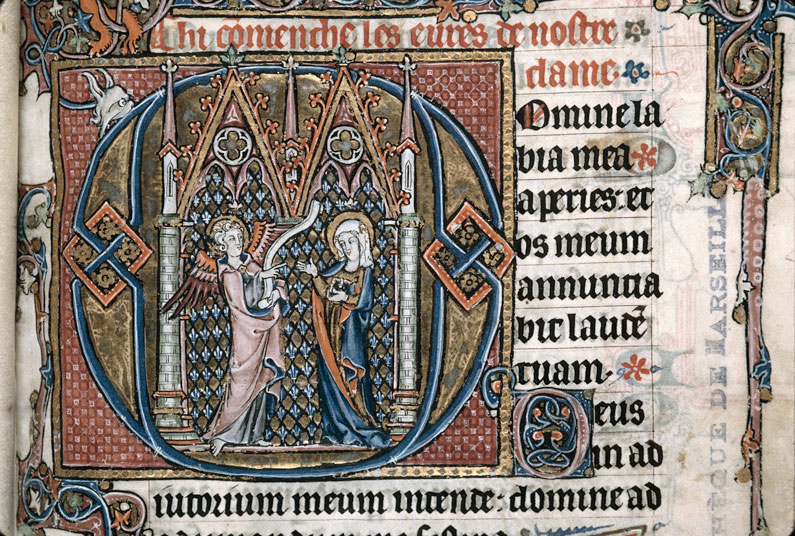 Chi cõmenche les eures de nostre
dame.
Domine la
bia mea
aperies: et
os meum
annuntia
bit laudẽ
tuam.
Deus
in ad
iutorium meum intende: domine ad
DE MARSEILLE